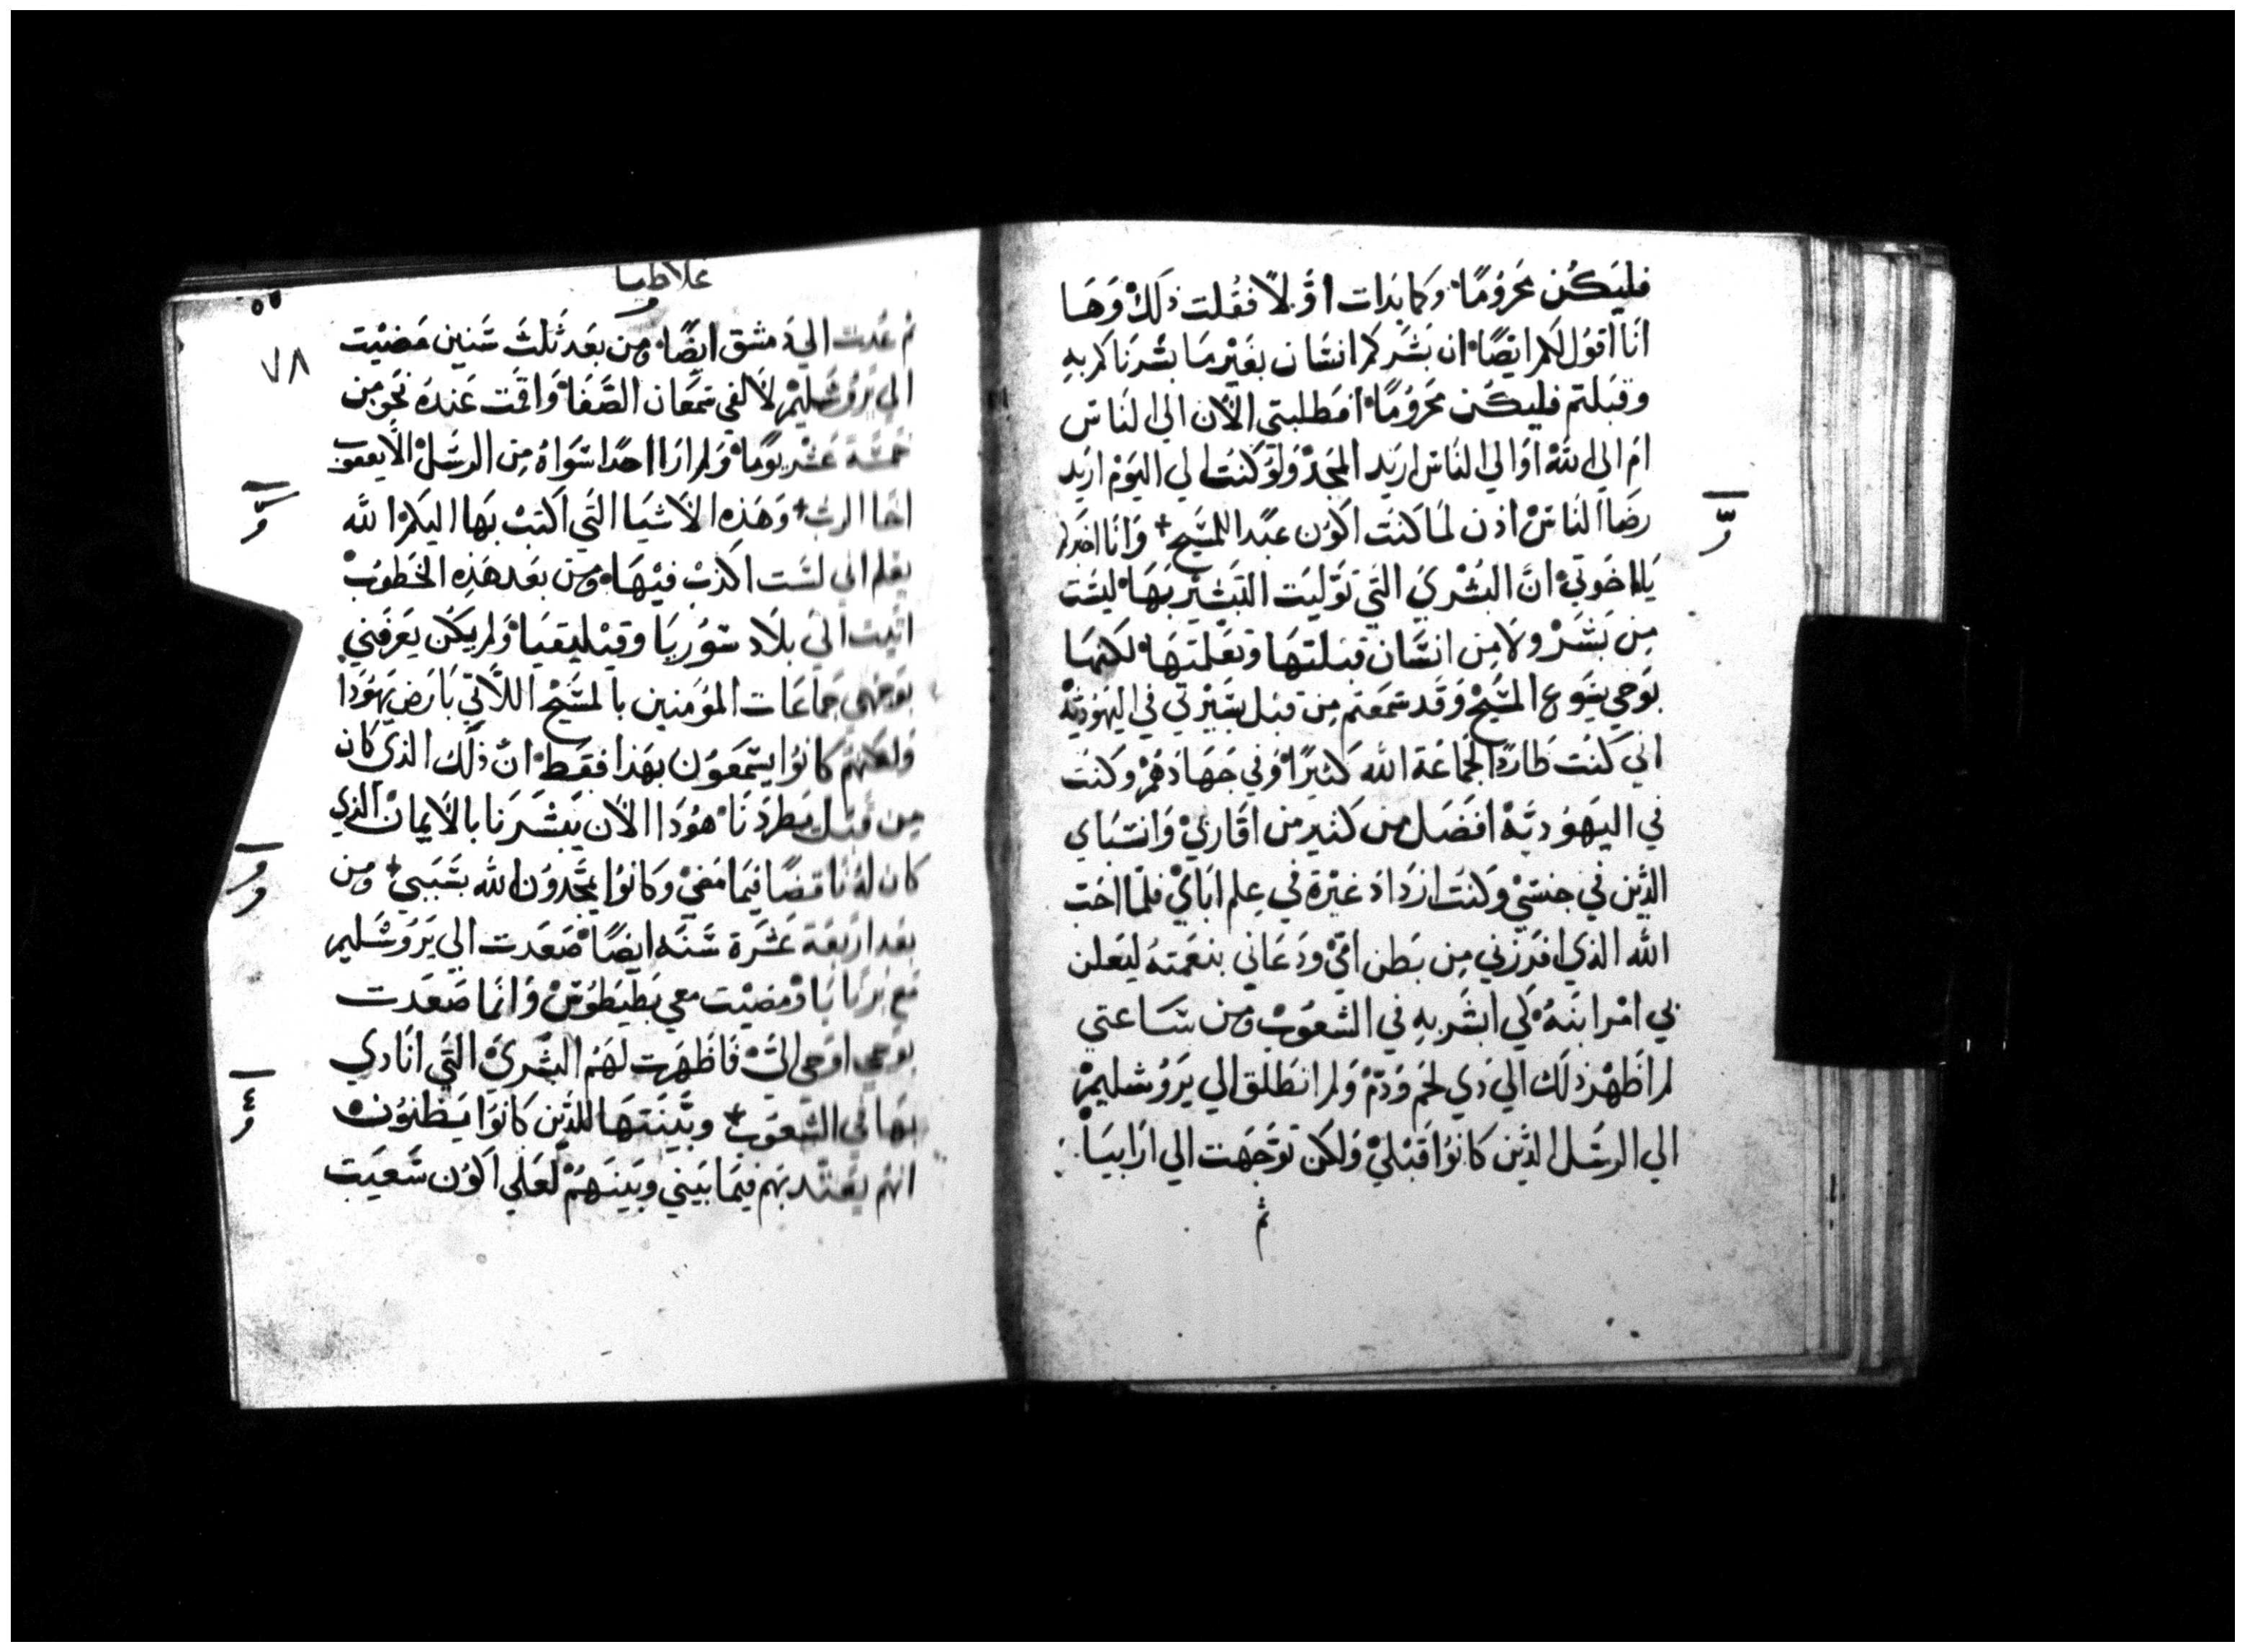 فليَكُن محرُومًا وكما بدات اوَّلاً فقُلت ذلك وَهَا
انا اقوُل لكم ايضًا ان بشركم انسَان بغَيْر مَا بشرناكم بهِ
وقبَلتم فليكُن محرُومًا افطلبتي الآن الي الناس
ام الي الله او الي الناس اريد المجد ولو كنت الي اليوم اريد
رضا الناس اذن لما كنت اكون عبدًا للمسَيح وانا اخبركم
يااخوتي ان البُشري التي توليت التبشير بها ليست
من بَشر ولا من انسَان قبلتها وتعلمتها لكنها
بوَحي يسَوع المسَيح وقد سمعتم من قبل بسيرتي في اليهودية
اني كنت طاردًا لجماعة الله كثيرًا وفي جهادهم وكنت
في اليهودية افضل من كثير من اقاربي وانسَباي
الذين في جنسي وكنت ازداد غيرة في علم اباي فلما احب
الله الذي افرزني من بطن امي ودعاني بنعمته ليعلن
بي امر ابنه كي ابشر به في الشعوب ومن سَاعتي
لم اظهر ذلك الي ذي لحم ودم ولم انطلق الي يروشليم
الي الرسَل الذين كانوا قبلي ولكن توجهت الي ارابيا
ثم
غلاطيا
٥٥
٧٨
ثم عُدت الي دمشق ايضًا ومن بعد ثلث سَنين مضيْت
الي يروشليم لالقي سمعان الصَّفا واقمت عندهُ نحو من
خمسَة عشر يومًا ولم ارا احدًا سَواهُ من الرسَل الا يعقوب
اخا الرب وهذه الاشيا التي اكتب بها اليكم الله
يعلم اني لسَت اكذب فيها ومن بعد هذه الخطوب
اتيت الي بلاد سَوريا وقيليقيا ولم يكن يعرفني
بوجهي جماعات المؤمنين بالمسَيح اللاتي بارض يهودا
ولكنهم كانوا يسَمعون بهذا فقط ان ذلك الذي كان
من قبل يطردنا هُودا الآن يبشرنا بالايمان الذي
كان لهُ ناقضًا فيما مضي وكانوا يمجدون الله بسَببي ومن
بعد اربعة عشرة سَنه ايضًا صَعدت الي يروشليم
مع برنابا ومضيْت معي بطيطوس وانما صَعدت
بوَحي اوحي اليّ فاظهرت لهم البُشري التي انادي
بها في الشعوب وبيّنتها للذين كانوا يظنون
انهم يعتد بهم فيما بيني وبينهم لعلي اكون سَعيت